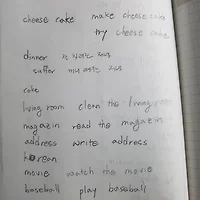 cheese cake make cheese cake
try cheese cake
dinner
suffer
cake
living room clean the living room
magazin read the magazin
address write address
korean
movie watch the movie
baseball play baseball